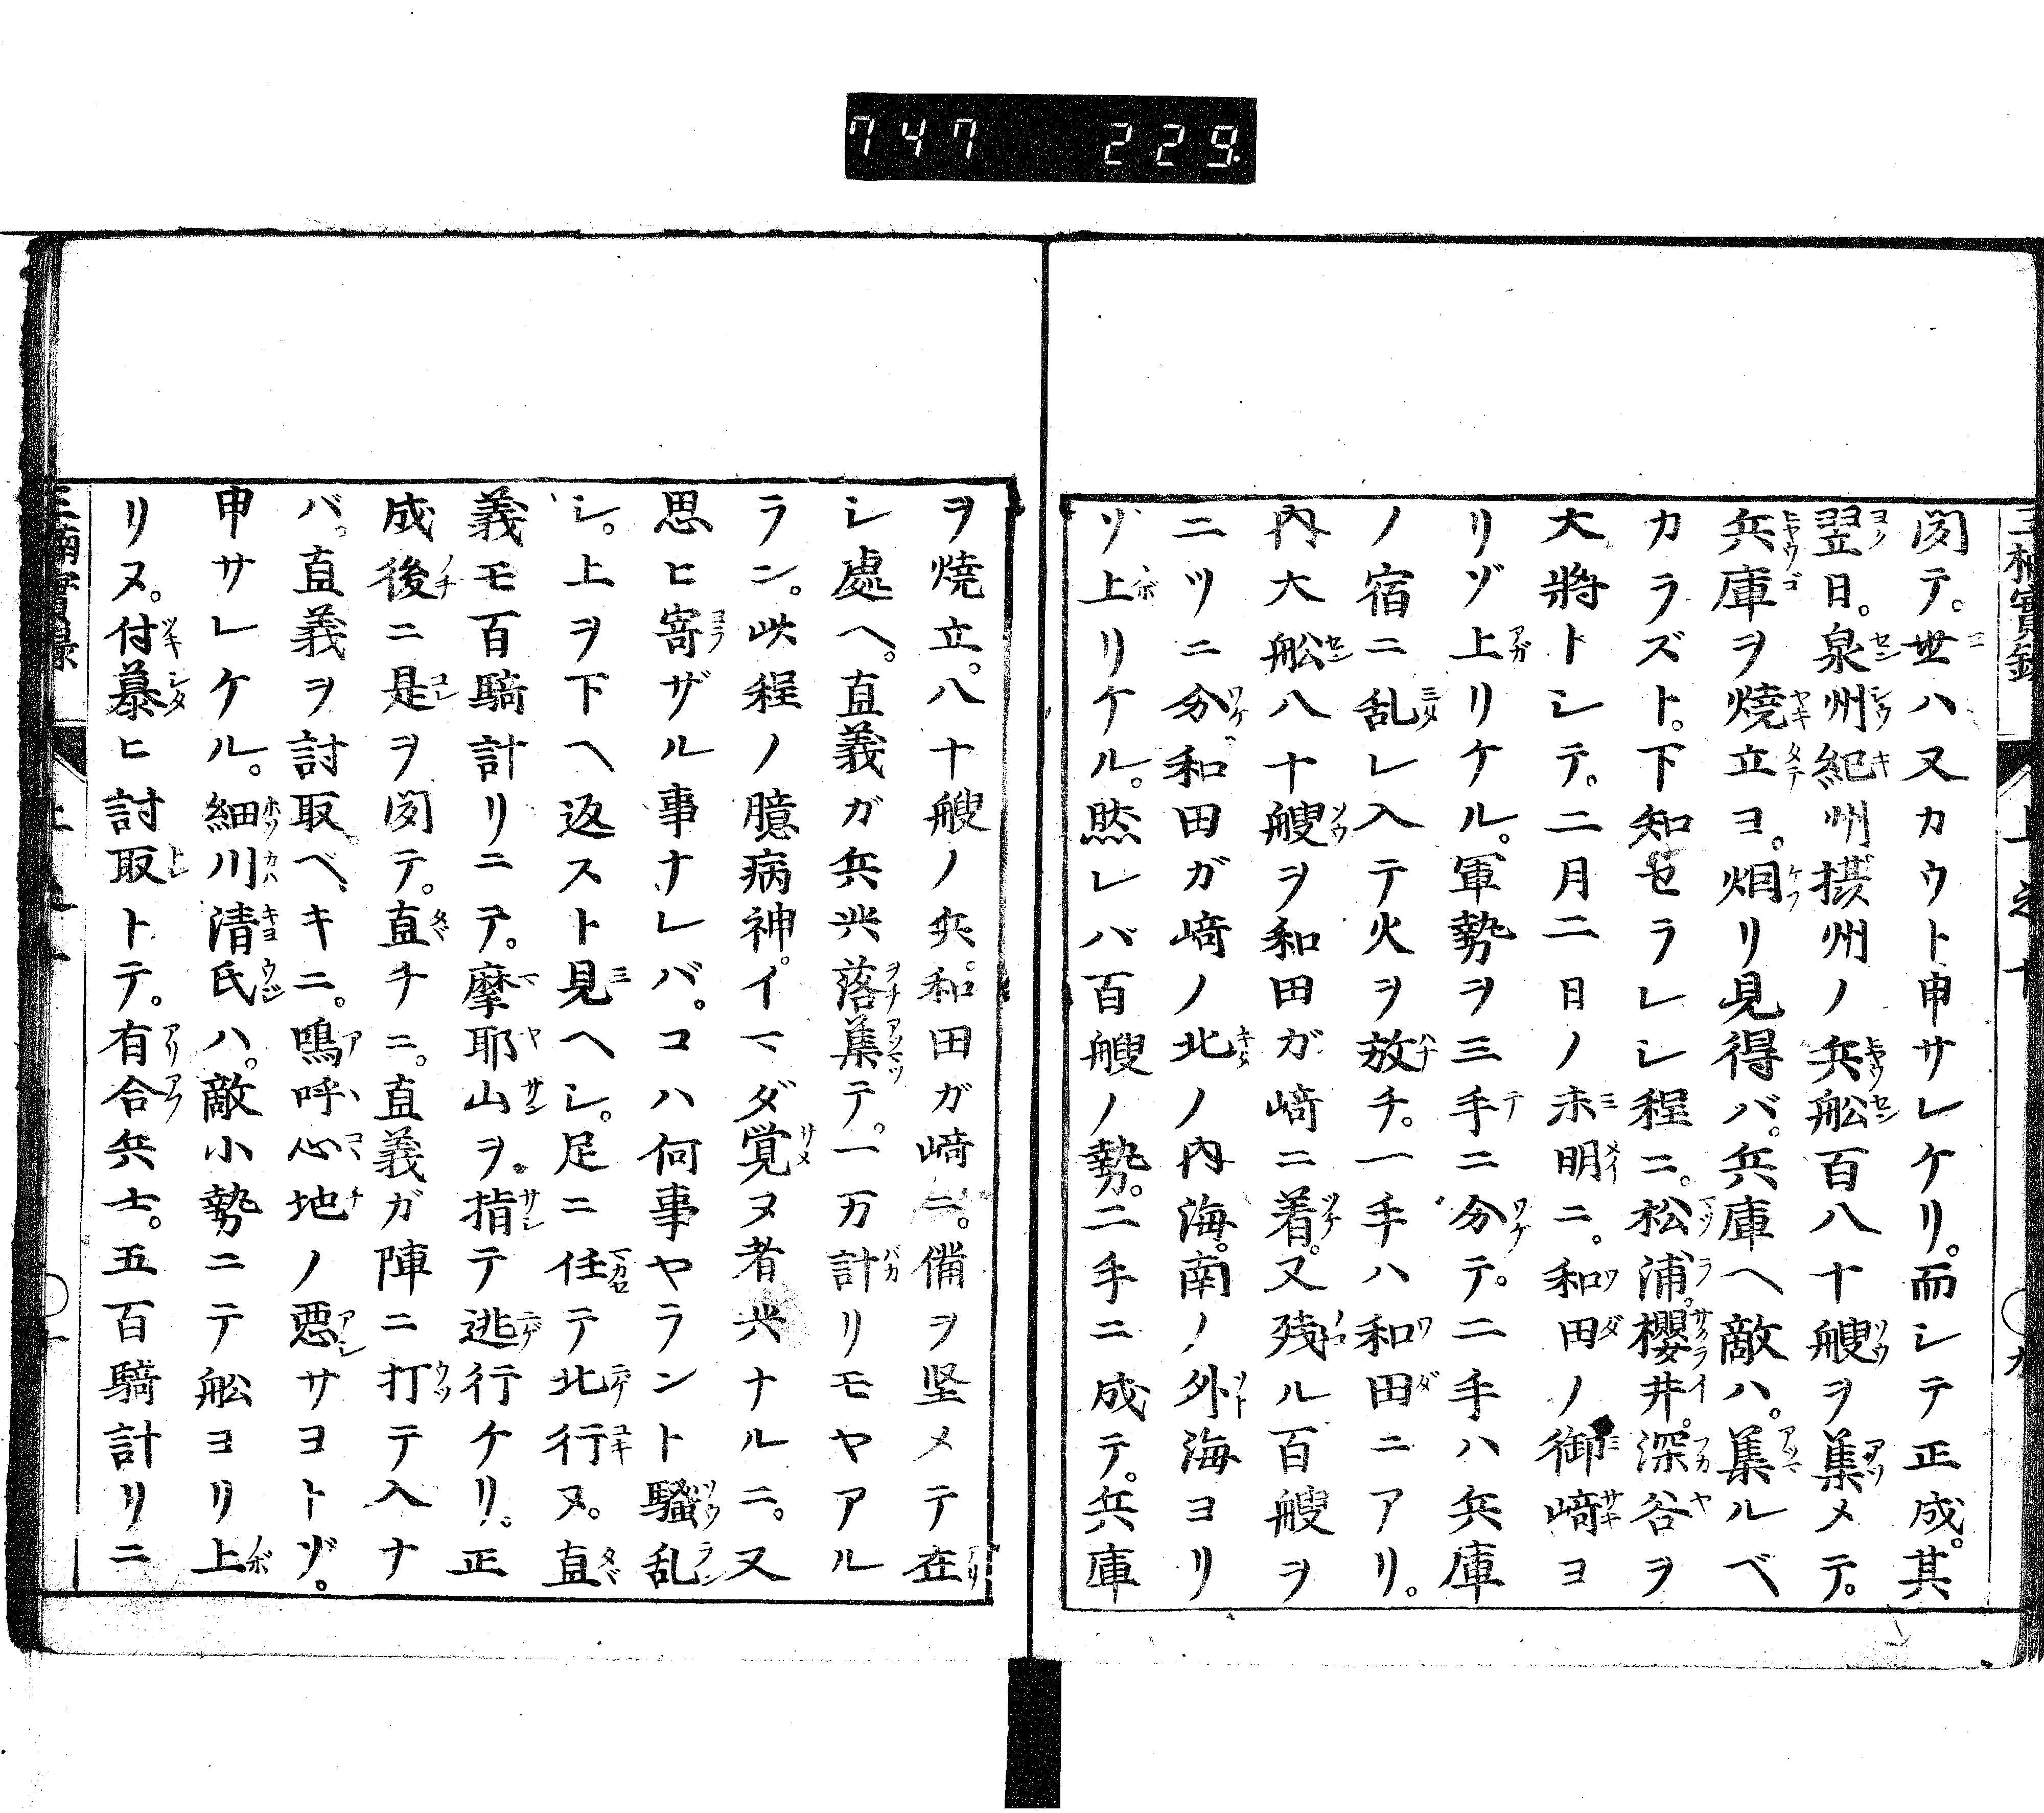 747 229
聞テ。世ハ又カウト申サレケリ。而シテ正成。其
翌日。泉州紀州摂州ノ兵舩百八十艘ヲ集メテ。
兵庫ヲ焼立ヨ。烟リ見得バ。兵庫ヘ敵ハ。集ルベ
カラズト。下知セラレシ程ニ。松浦。櫻井。深谷ヲ
大將トシテ。二月二日ノ未明ニ。和田ノ御﨑ヨ
リゾ上リケル。軍勢ヲ三手ニ分テ。二手ハ兵庫
ノ宿ニ乱レ入テ火ヲ放チ。一手ハ和田ニアリ。
内大舩八十艘ヲ和田ガ﨑ニ着。又残ル百艘ヲ
ニツニ分和田ガ﨑ノ北ノ内海。南ノ外海ヨリ
ゾ上リケル。然レバ百艘ノ勢。二手ニ成テ。兵庫
ヲ焼立。八十艘ノ兵。和田ガ﨑ニ。備ヲ坚メテ在
シ處ヘ。直義ガ兵共落集テ。一万計リモヤアル
ラン。此程ノ臆病神。イマダ覚ヌ者共ナルニ。又
思ヒ寄ザル事ナレバ。コハ何事ヤラント騒乱
シ。上ヲ下ヘ返スト見ヘシ。足ニ任テ北行ヌ。直
義モ百騎計リニテ。摩耶山ヲ。指テ逃行ケリ。正
成後ニ是ヲ聞テ。直チニ。直義ガ陣ニ打テ入ナ
バ。直義ヲ討取ベキニ。嗚呼心地ノ悪サヨトゾ。
申サレケル。細川清氏ハ。敵小勢ニテ舩ヨリ上
リヌ。付慕ヒ討取トテ。有合兵士。五百騎計リニ